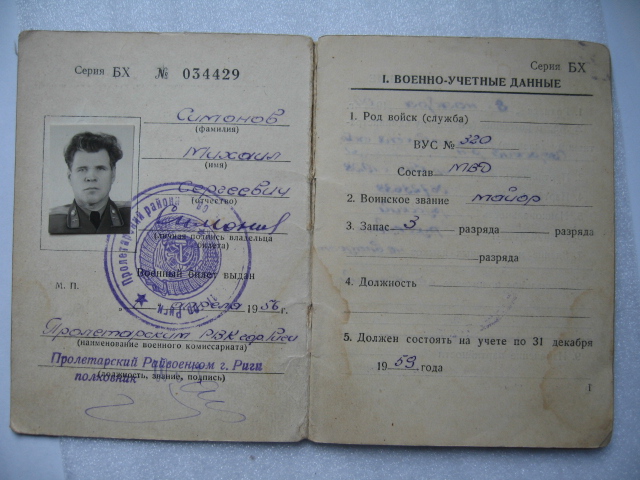 Серия БХ № 034429
Симонов
(фамилия)
Михаил
(имя)
Сергеевич
(отчество)
(личная подпись владельца
билета)
Военный билет выдан
М. П.
апреля 1956 г.
Пролетарским РВК гор Риги
(наименование военного комиссариата)
Пролетарский Райвоенком г. Риги
полковник
(должность, звание, подпись)
Пролетарский район
Серия БХ
I. ВОЕННО-УЧЕТНЫЕ ДАННЫЕ
1. Род войск (служба)
ВУС № 320
Состав МВД
2. Воинское звание майор
3. Запас 3 разряда разряда
разряда
4. Должность
5. Должен состоять на учете по 31 декабря
1959 года
1